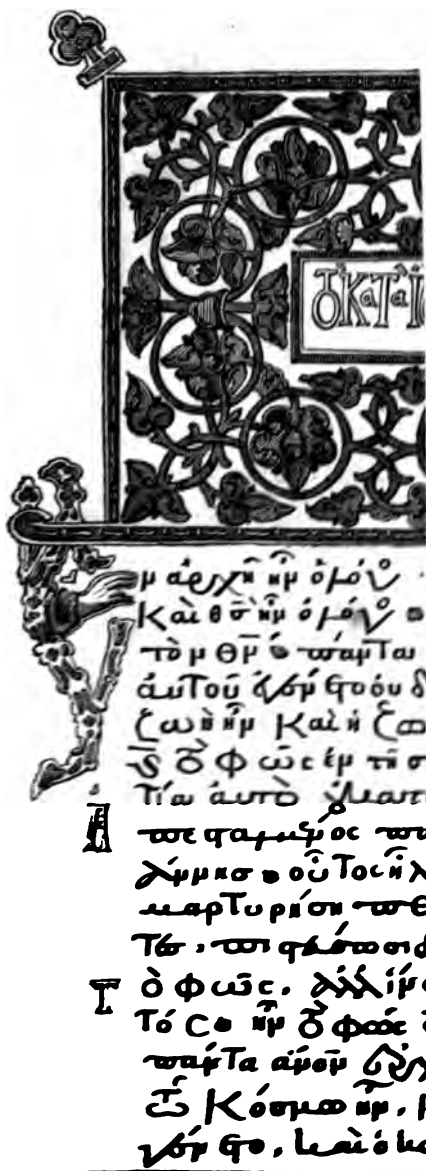 ΤὸΚατὰἸ
Ἐν ἀρχῇ ἦν ὁ λόγος
καὶ θσ ἦν ὁ λόγος
τὸν θν· πάντα
αὐτοῦ ἐγένετο οὐδ
ζωὴ ἦν καὶ ἡ ζω
τὸ φῶς ἐν τῇ σ
τία αὐτὸ
ἀπεσταλμένος πα
άννησ· οὗτος ἦλ
μαρτυρήσῃ
πιστεύσωσι δ
τὸ φῶς, ἀλλ ἵν
τός· ἦν τὸ φῶς
πάντα ἄνον ἐρχ
τῷ κόσμῳ ἦν,
γένετο, καὶ ὁ κο